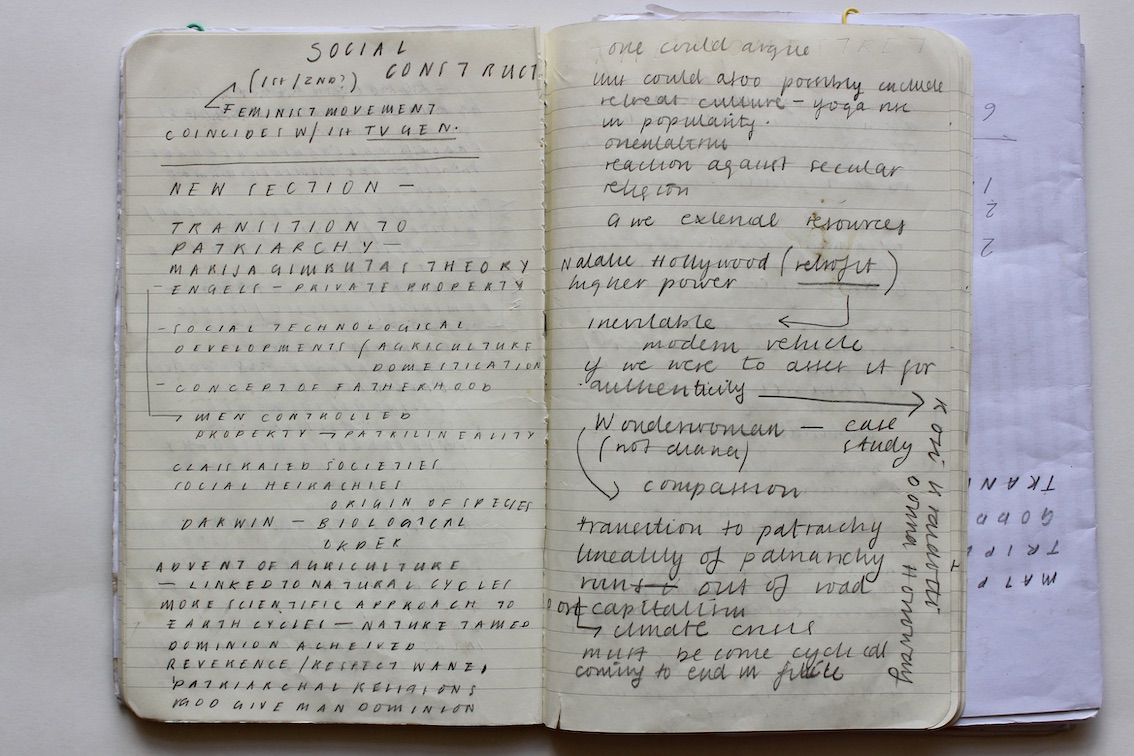 SOCIAL
CONSTRUCT
(1ST/2ND?)
FEMINIST MOVEMENT
COINCIDES W/ 1ST TV GEN.
NEW SECTION —
TRANSITION TO
PATRIARCHY —
MARIJA GIMBUTAS THEORY
- ENGELS - PRIVATE PROPERTY
- SOCIAL TECHNOLOGICAL
DEVELOPMENTS / AGRICULTURE
DOMESTICATION
- CONCEPT OF FATHERHOOD
→ MEN CONTROLLED
PROPERTY → PATRILINEALITY
CLASS BASED SOCIETIES
SOCIAL HEIRACHIES
ORIGIN OF SPECIES
DARWIN — BIOLOGICAL
ORDER
ADVENT OF AGRICULTURE
— LINKED TO NATURAL CYCLES
MORE SCIENTIFIC APPROACH TO
EARTH CYCLES — NATURE TAMED
DOMINION ACHEIVED
REVERENCE / RESPECT WANES
PATRIARCHAL RELIGIONS
GOD GIVE MAN DOMINION
one could argue
this could also possibly include
retreat culture - yoga rise
in popularity.
orientalism
reaction against secular
religion
a we external resources
Natalie Hollywood (retrofit)
higher power
inevitable
modern vehicle
if we were to asses it for
authenticity
Wonderwoman — case
(not diana) study
compassion
transition to patrarchy
lineality of patriarchy
runs out of road
capitalism
→ climate crisis
must become cyclical
coming to end in finite
donna Haraway
6
1.
2
2
TRAN
GODD
TRIPL
MATR